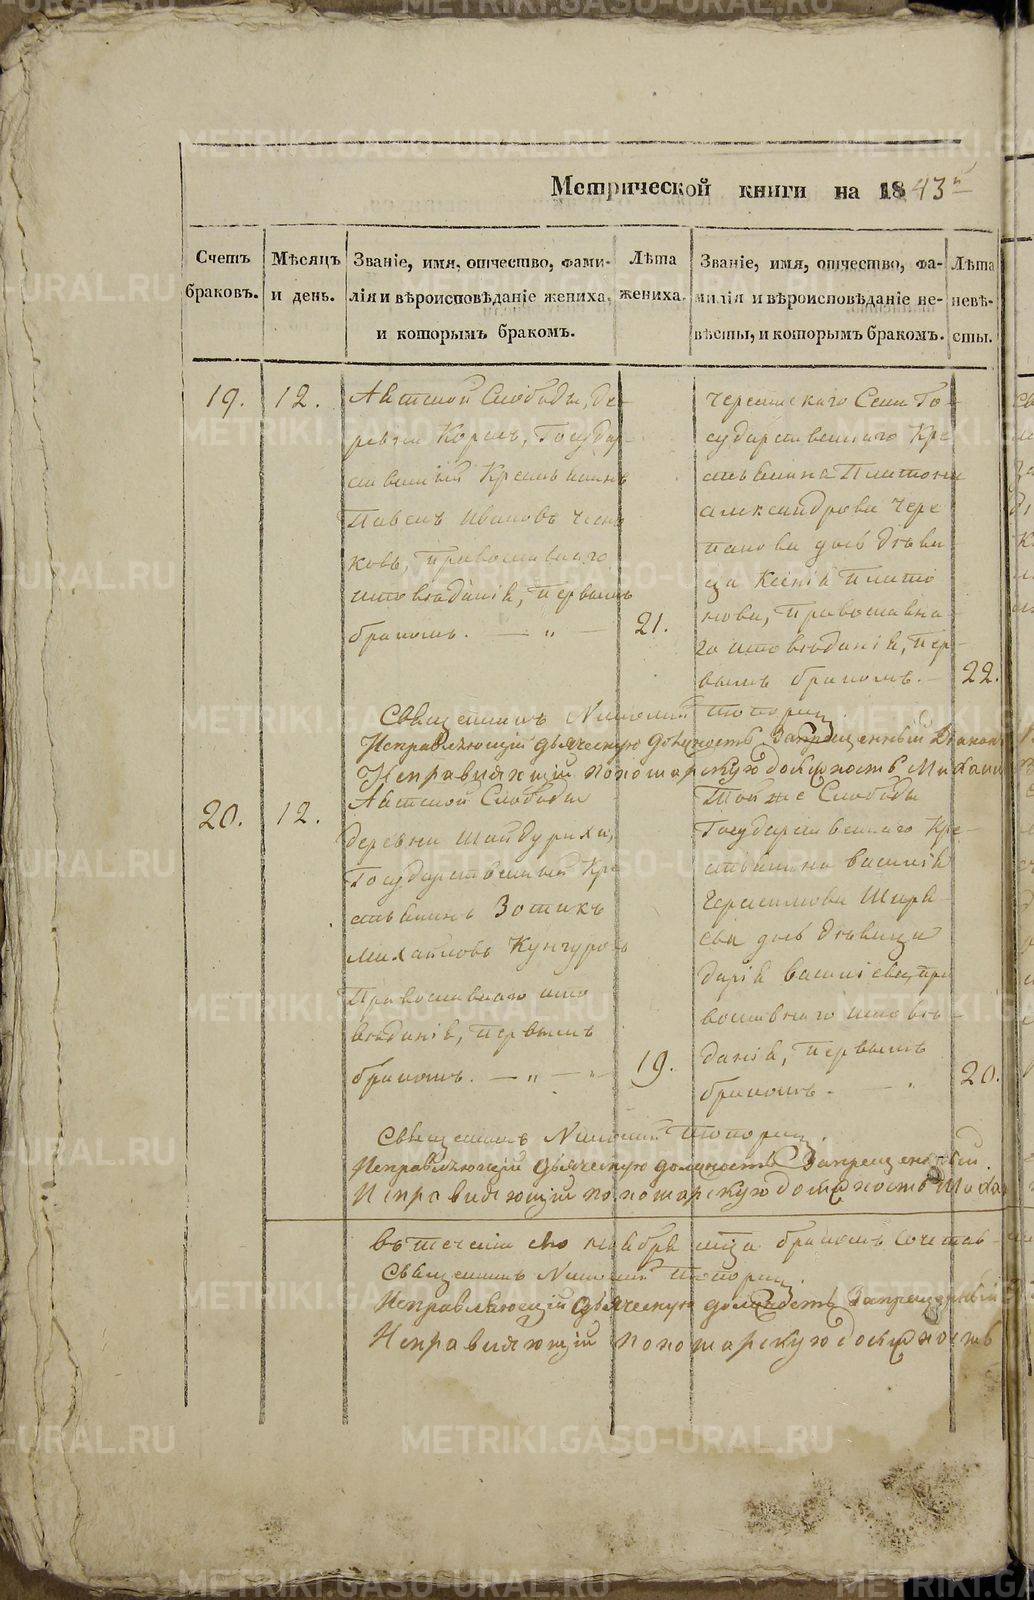 Метрической книги на 1843й
Счетъ браковъ.
Мѣсяцъ и день.
Званіе, имя, отчество, фами-
лія и вѣроисповѣданіе жениха,
и которымъ бракомъ.
Лѣта
жениха.
Званіе, имя, отчество, фа-
милія и вѣроисповѣданіе не-
вѣсты, и которымъ бракомъ.
Лѣта
невѣ-
сты.
19.
12.
Аятской Слободы, де-
ревни Корелъ, Государ-
ственный Крестьянинъ
Павелъ Ивановъ
ковъ, православнаго
исповѣданія, первымъ
бракомъ. — „ —
21.
Черемискаго Села Го-
сударственнаго Кре-
стьянина Платона
Александрова Чере
панова дочь дѣви
ца Ксенія Плато
нова, православна-
го исповѣданія, пер-
вымъ бракомъ. —
22.
Священникъ Николай Топорищ.
Исправляющій дьяческую должность Запрещенный Діакон
Исправляющій пономарскую должность Михаил
20.
12.
Аятской Слободы
деревни Шайдурихи,
Государственный Кре
стьянинъ Зотикъ
Михайловъ Кунгуровъ
Православнаго испо
вѣданія, первымъ
бракомъ. — „ — „ —
19.
Той же Слободы
Государственнаго Кре-
стьянина Василія
Герасимова Ширя
ева дочь дѣвица
Дарія Васильева, пра
вославнаго исповѣ-
данія, первымъ
бракомъ. — „
20.
Священникъ Николай Топорищ.
Исправляющій дьяческую должность Запрещенный
Исправляющій пономарскую должность Миха
Въ теченіи сего ноября мца бракомъ сочетав-
Священникъ Николай Топорищ.
Исправляющій дьяческую должность Запрещенный
Исправляющій пономарскую должность
METRIKI.GASO-URAL.RU